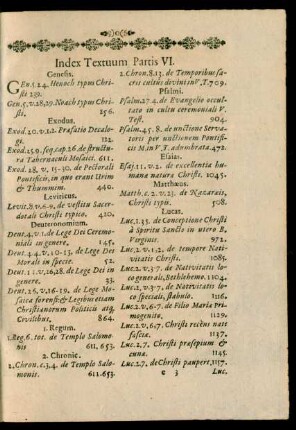 Index Textuum Partis VI.
Genesis.
GEn.5.24. Henoch typus Christi
239.
Gen.5.v.28.29. Noach typus Christi.
256.
Exodus.
Exod.20.v.1.2. Præfatio Decalogi.
112.
Exod.25.9. seq. cap.26. de structura
Tabernaculi Mosaici. 611.
Exod.28. v. 15-30. de Pectorali
Pontificis, in quo erant Urim
& Thummim. 440.
Leviticus.
Levit.8.v.6-9. de vestitu Sacerdotali
Christi typico. 420.
Deuteronomium.
Deut.4.v.1. de Lege Dei Ceremoniali
in genere, 145.
Deut.5.4.v.10-13. de Lege Dei
Morali in specie. 52.
Deut.5 1.v.16,28. de Lege Dei in
genere. 33.
Deut.26.v.16-19. de Lege Mosaica
forensi & Legibus etiam
Christianorum Politicis atq;
Civilibus. 864.
1. Regum.
1. Reg.6. tot. de Templo Salomonis
611, 653.
2. Chronic.
2. Chron.c.3.4. de Templo Salomonis.
611. 653.
2. Chron.8.13. de Temporibus sacris
cultus divini in V.T. 709.
Psalmi.
Psalm.27.4. de Evangelio occultato
in cultu ceremoniali V.
Test. 904.
Psalm.45.8. de unctione Servatoris
per unctionem Pontificis
M. in V.T. adumbrata. 472.
Esaias.
Esaj.11.v.2. de excellentia humanæ
naturæ Christi. 1045.
Matthæus.
Matth.c.2.v.23. de Nazaræis,
Christi typis. 508.
Lucas.
Luc.1.35. de Conceptione Christi
à Spiritu Sancto in utero B.
Virginis. 972.
Luc.2.v.1.2. de tempore Nativitatis
Christi. 1085.
Luc.2.v.3-7. de Nativitatis loco
generali, Bethlehemo. 1104.
Luc.2.v.3-7. de Nativitatis loco
speciali, stabulo. 1116.
Luc.2.v.6.7. de Filio Mariæ primogenito.
1129.
Luc.2.v.6.7. Christi recèns nati
fascia. 1147.
Luc.2.7. Christi præsepium &
cunæ. 1145.
Luc.2.7. de Christi paupere, 1157.
c 3 Luc.